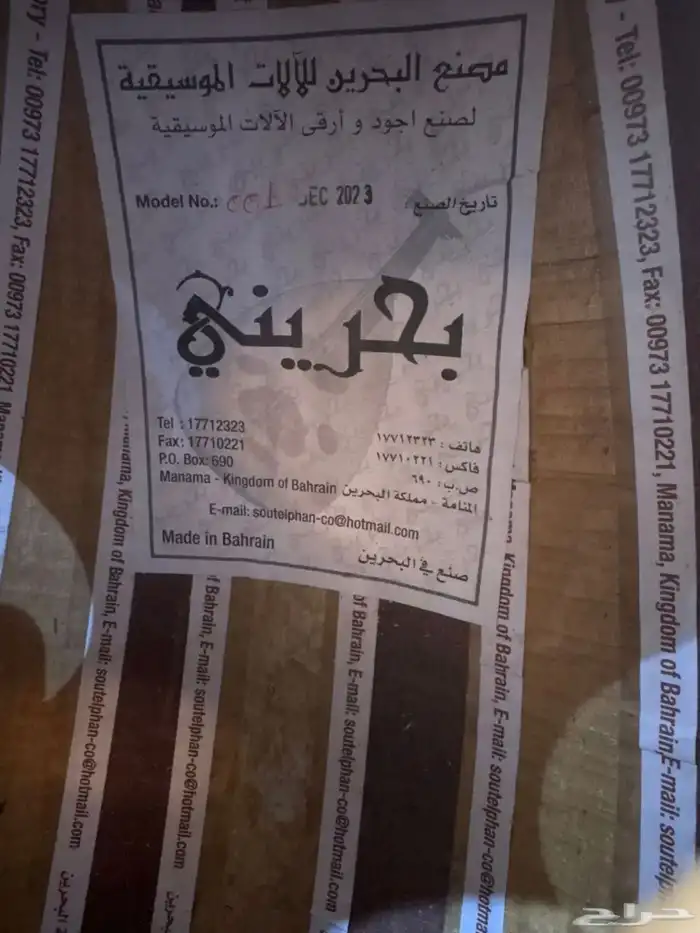 مصنع البحرين للآلات الموسيقية
لصنع اجود و أرقى الآلات الموسيقية
Model No.: 001 DEC 2023 تاريخ الصنع:
بحريني
Tel : 17712323
Fax: 17710221
P.O. Box: 690
هاتف : ١٧٧١٢٣٢٣
فاكس : ١٧٧١٠٢٢١
ص.ب: ٦٩٠
Manama - Kingdom of Bahrain المنامة - مملكة البحرين
E-mail: soutelphan-co@hotmail.com
Made in Bahrain
صنع في البحرين
ory - Tel: 00973 17712323, Fax: 00973 17710221, Manama
Manama, Kingdom of Bahrain, E-mail: soutelphan-co@hotmail.com
of Bahrain, E-mail: soutelphan-co@hotmail.com
البحرين
of Bahrain, E-mail: soutelphan-co@hotmail.com
Kingdom of Bahrain, E-mail: soutelphan-co@hotma
y - Tel: 00973 17712323, Fax: 00973 17710221, Manama, Kingdom of Bahrain, E-mail: soutelp
البحرين
حراج